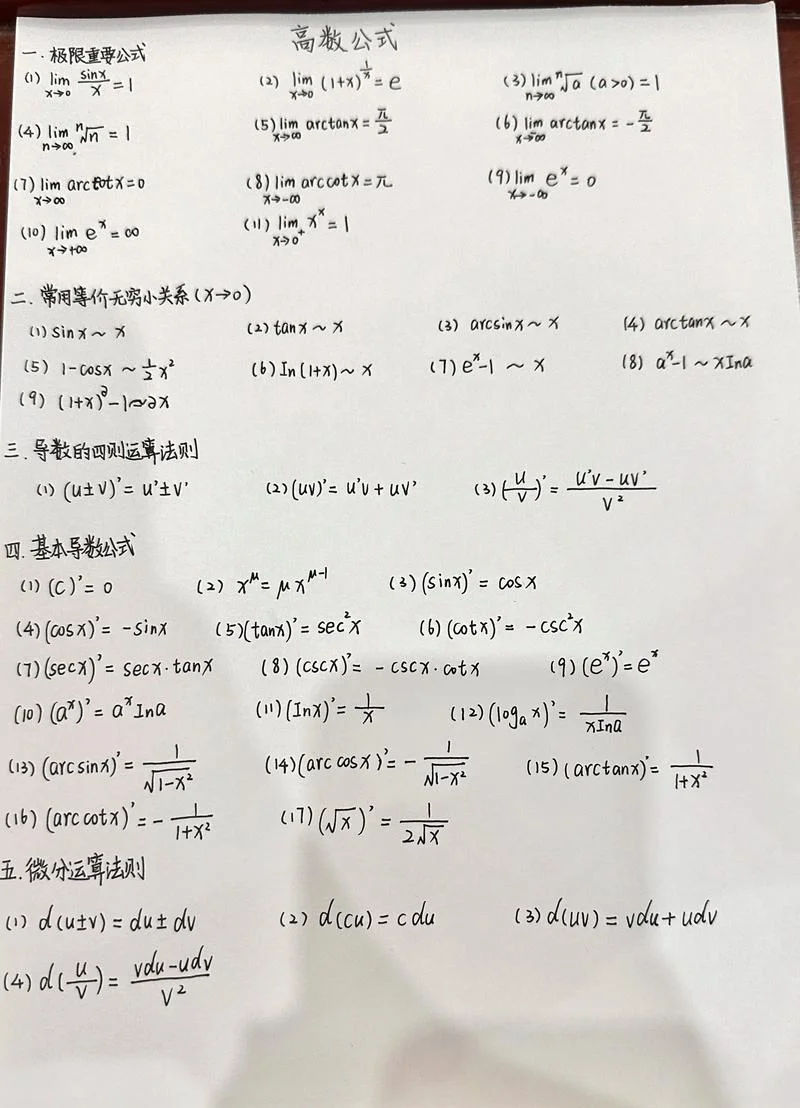 高数公式
一.极限重要公式
(1) lim x→0 sinx/x = 1 (2) lim x→0 (1+x)^(1/x) = e (3) lim n→∞ ⁿ√a (a>0) = 1
(4) lim n→∞ ⁿ√n = 1 (5) lim x→∞ arctanx = π/2 (6) lim x→-∞ arctanx = -π/2
(7) lim x→∞ arccotx = 0 (8) lim x→-∞ arccotx = π (9) lim x→-∞ eˣ = 0
(10) lim x→+∞ eˣ = ∞ (11) lim x→0⁺ xˣ = 1
二.常用等价无穷小关系(x→0)
(1) sinx ~ x (2) tanx ~ x (3) arcsinx ~ x (4) arctanx ~ x
(5) 1-cosx ~ 1/2 x² (6) In(1+x) ~ x (7) eˣ-1 ~ x (8) aˣ-1 ~ xIna
(9) (1+x)^∂ -1 ~ ∂x
三.导数的四则运算法则
(1) (u±v)' = u'±v' (2) (uv)' = u'v + uv' (3) (u/v)' = (u'v - uv')/v²
四.基本导数公式
(1) (c)' = 0 (2) x^μ = μx^(μ-1) (3) (sinx)' = cosx
(4) (cosx)' = -sinx (5) (tanx)' = sec²x (6) (cotx)' = -csc²x
(7) (secx)' = secx·tanx (8) (cscx)' = -cscx·cotx (9) (eˣ)' = eˣ
(10) (aˣ)' = aˣIna (11) (Inx)' = 1/x (12) (logₐx)' = 1/(xIna)
(13) (arcsinx)' = 1/√(1-x²) (14) (arccosx)' = -1/√(1-x²) (15) (arctanx)' = 1/(1+x²)
(16) (arccotx)' = -1/(1+x²) (17) (√x)' = 1/(2√x)
五.微分运算法则
(1) d(u±v) = du±dv (2) d(cu) = cdu (3) d(uv) = vdu+udv
(4) d(u/v) = (vdu-udv)/v²